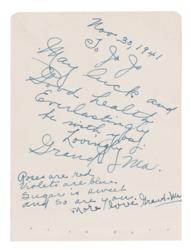 Nov-30, 1941
To Jo Jo
May luck and
Good health
Everlastingly
be with you
Lovingly
Grand Ma.
Roses are red
Violets are blue
Sugar is sweet
and so are you.
more love Grand-Ma